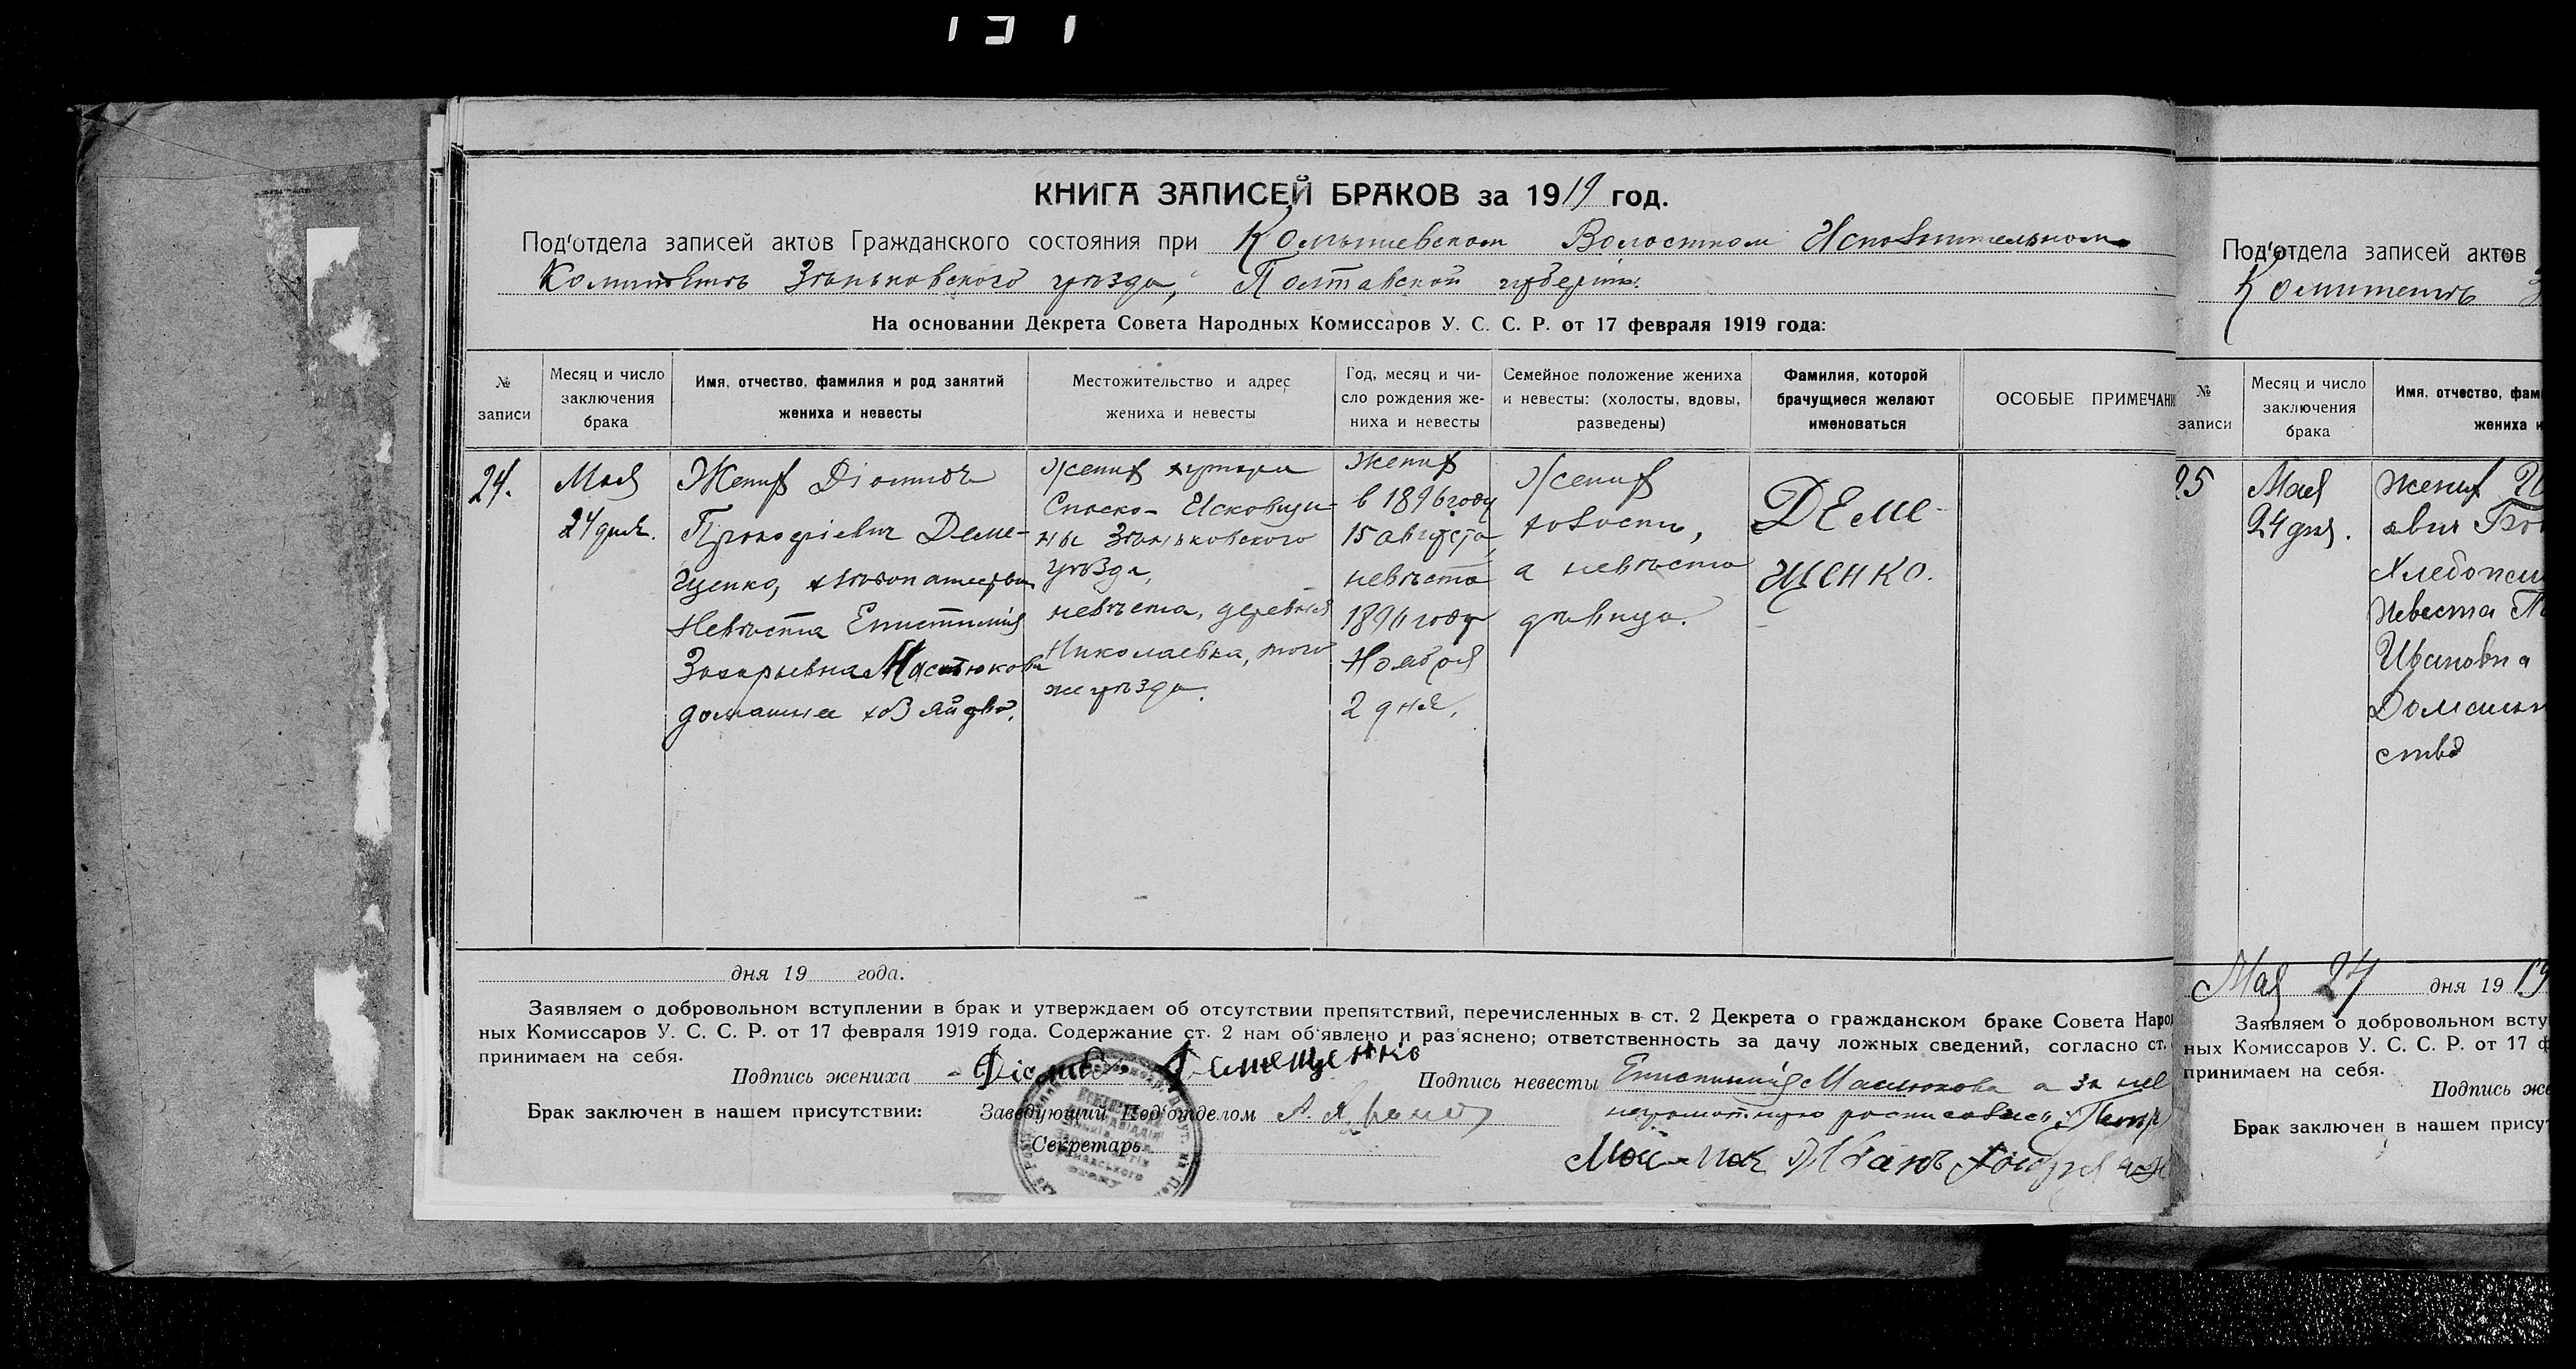 КНИГА ЗАПИСЕЙ БРАКОВ за 1919 год.
Под'отдела записей актов Гражданского состояния при Комышевском Волостном Исполнительном
Комитетѣ Зѣньковского уѣзда, Полтавской губерніи.
На основании Декрета Совета Народных Комиссаров У. С. С. Р. от 17 февраля 1919 года:
№ записи
Месяц и число заключения брака
Имя, отчество, фамилия и род занятий жениха и невесты
Местожительство и адрес жениха и невесты
Год, месяц и число рождения жениха и невесты
Семейное положение жениха и невесты: (холосты, вдовы, разведены)
Фамилия, которой брачущиеся желают именоваться
ОСОБЫЕ ПРИМЕЧАНИ
24.
Мая
24 дня.
Жених Діомид
Прокофіевич Деме-
щенко, хлѣбопашество
Невѣста Епистимия
Захарьевна Маслюкова
домашнее хозяйство.
Жених хутора
Спаско-Исковщи-
ны Зѣньковского
уѣзда,
невѣста, деревня
Николаевка, того
же уѣзда.
Жених
в 1896 году
15 августа,
невѣста
1896 году
Ноября
2 дня.
Жених
холость,
а невѣста
дѣвица.
ДЕМЕ-
ЩЕНКО.
дня 19 года.
Заявляем о добровольном вступлении в брак и утверждаем об отсутствии препятствий, перечисленных в ст. 2 Декрета о гражданском браке Совета Наро
ных Комиссаров У. С. С. Р. от 17 февраля 1919 года. Содержание ст. 2 нам об'явлено и раз'яснено; ответственность за дачу ложных сведений, согласно ст.
принимаем на себя.
Подпись жениха Діомид Демещенко
Подпись невесты Епистимия Маслюкова а за нее
неграмотную росписовись: Петр
Брак заключен в нашем присутствии: Заведующий Под'отделом
Секретарь
Иван
Под'отдела записей актов
Комитетѣ
№ записи
Месяц и число заключения брака
Имя, отчество, фам
жениха и
25
Мая
24 дня.
Жених
Хлебопаш
Невеста
Ивановна
Домашн
ство
Мая 24 дня 1919
Заявляем о добровольном всту
ных Комиссаров У. С. С. Р. от 17 ф
принимаем на себя.
Подпись же
Брак заключен в нашем присут